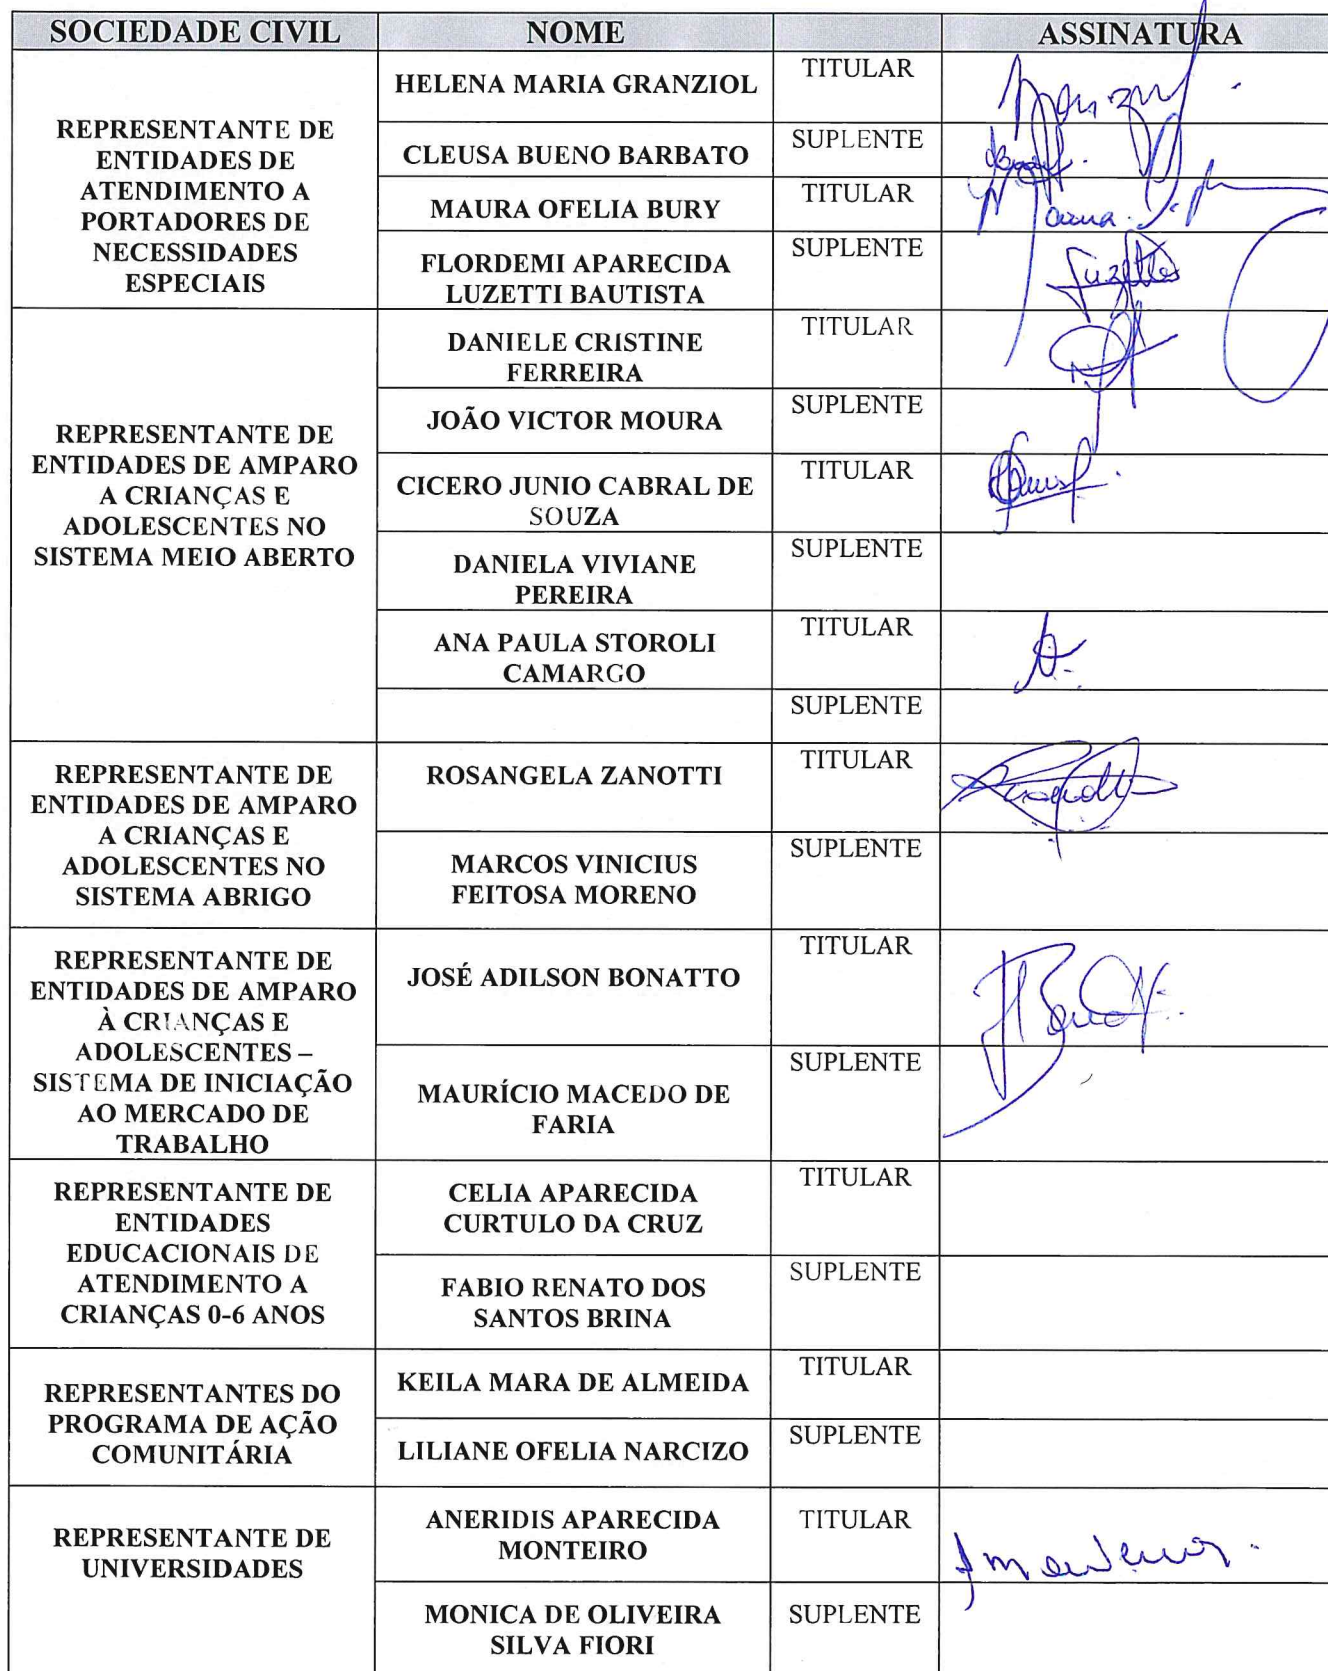 SOCIEDADE CIVIL NOME ASSINATURA
REPRESENTANTE DE
ENTIDADES DE
ATENDIMENTO A
PORTADORES DE
NECESSIDADES
ESPECIAIS
HELENA MARIA GRANZIOL TITULAR
CLEUSA BUENO BARBATO SUPLENTE
MAURA OFELIA BURY TITULAR
FLORDEMI APARECIDA
LUZETTI BAUTISTA
SUPLENTE
REPRESENTANTE DE
ENTIDADES DE AMPARO
A CRIANÇAS E
ADOLESCENTES NO
SISTEMA MEIO ABERTO
DANIELE CRISTINE
FERREIRA
TITULAR
JOÃO VICTOR MOURA SUPLENTE
CICERO JUNIO CABRAL DE
SOUZA
TITULAR
DANIELA VIVIANE
PEREIRA
SUPLENTE
ANA PAULA STOROLI
CAMARGO
TITULAR
SUPLENTE
REPRESENTANTE DE
ENTIDADES DE AMPARO
A CRIANÇAS E
ADOLESCENTES NO
SISTEMA ABRIGO
ROSANGELA ZANOTTI TITULAR
MARCOS VINICIUS
FEITOSA MORENO
SUPLENTE
REPRESENTANTE DE
ENTIDADES DE AMPARO
À CRIANÇAS E
ADOLESCENTES –
SISTEMA DE INICIAÇÃO
AO MERCADO DE
TRABALHO
JOSÉ ADILSON BONATTO TITULAR
MAURÍCIO MACEDO DE
FARIA
SUPLENTE
REPRESENTANTE DE
ENTIDADES
EDUCACIONAIS DE
ATENDIMENTO A
CRIANÇAS 0-6 ANOS
CELIA APARECIDA
CURTULO DA CRUZ
TITULAR
FABIO RENATO DOS
SANTOS BRINA
SUPLENTE
REPRESENTANTES DO
PROGRAMA DE AÇÃO
COMUNITÁRIA
KEILA MARA DE ALMEIDA TITULAR
LILIANE OFELIA NARCIZO SUPLENTE
REPRESENTANTE DE
UNIVERSIDADES
ANERIDIS APARECIDA
MONTEIRO
TITULAR
MONICA DE OLIVEIRA
SILVA FIORI
SUPLENTE